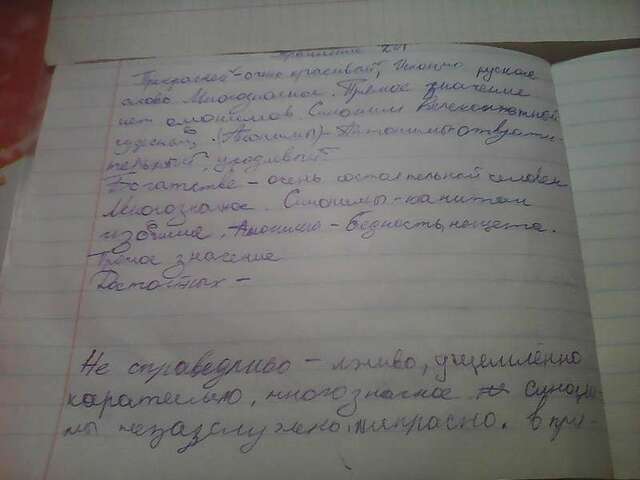 Прекрасней - очень красивый, Исконно руское
слово. Многозначное. Прямое значение
нет омонимов. Синоним Великолепной
чудесный. (Антонимы) - Антонимы отврати-
тельный, уродливый.
Богатстве - очень состоятельной человек
Многозначное. Синонимы - капитал
изобилие. - бедность, нещета.
Прямое значение
Достойных -
Не справедливо - лживо, ущемлённо
карательно, многозначное синони-
мы незазслужено, напрасно. в пря-